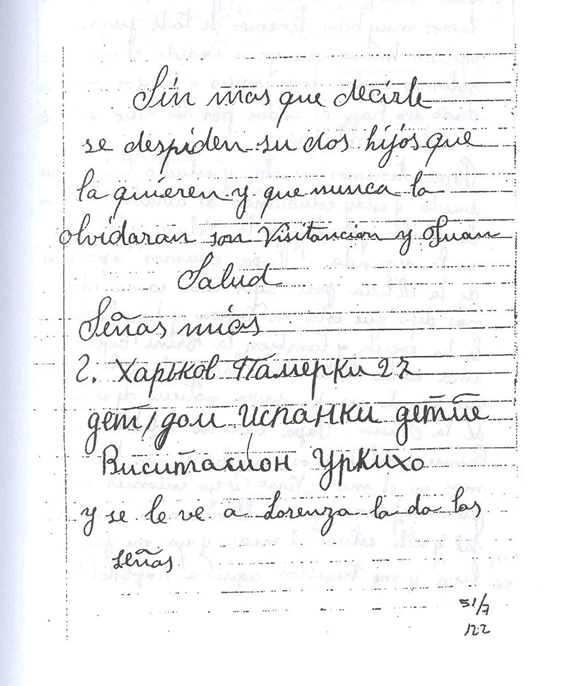 Sin mas que decirle
se despiden su dos hijos que
la quieren y que nunca la
olvidaran son Visitancion y Juan
Salud
Señas mias
г. Харьков Памерки 27
дет/дом испанки детие
Виситасион Уркихо
y se le ve a Lorenza la da las
señas
51/7
122